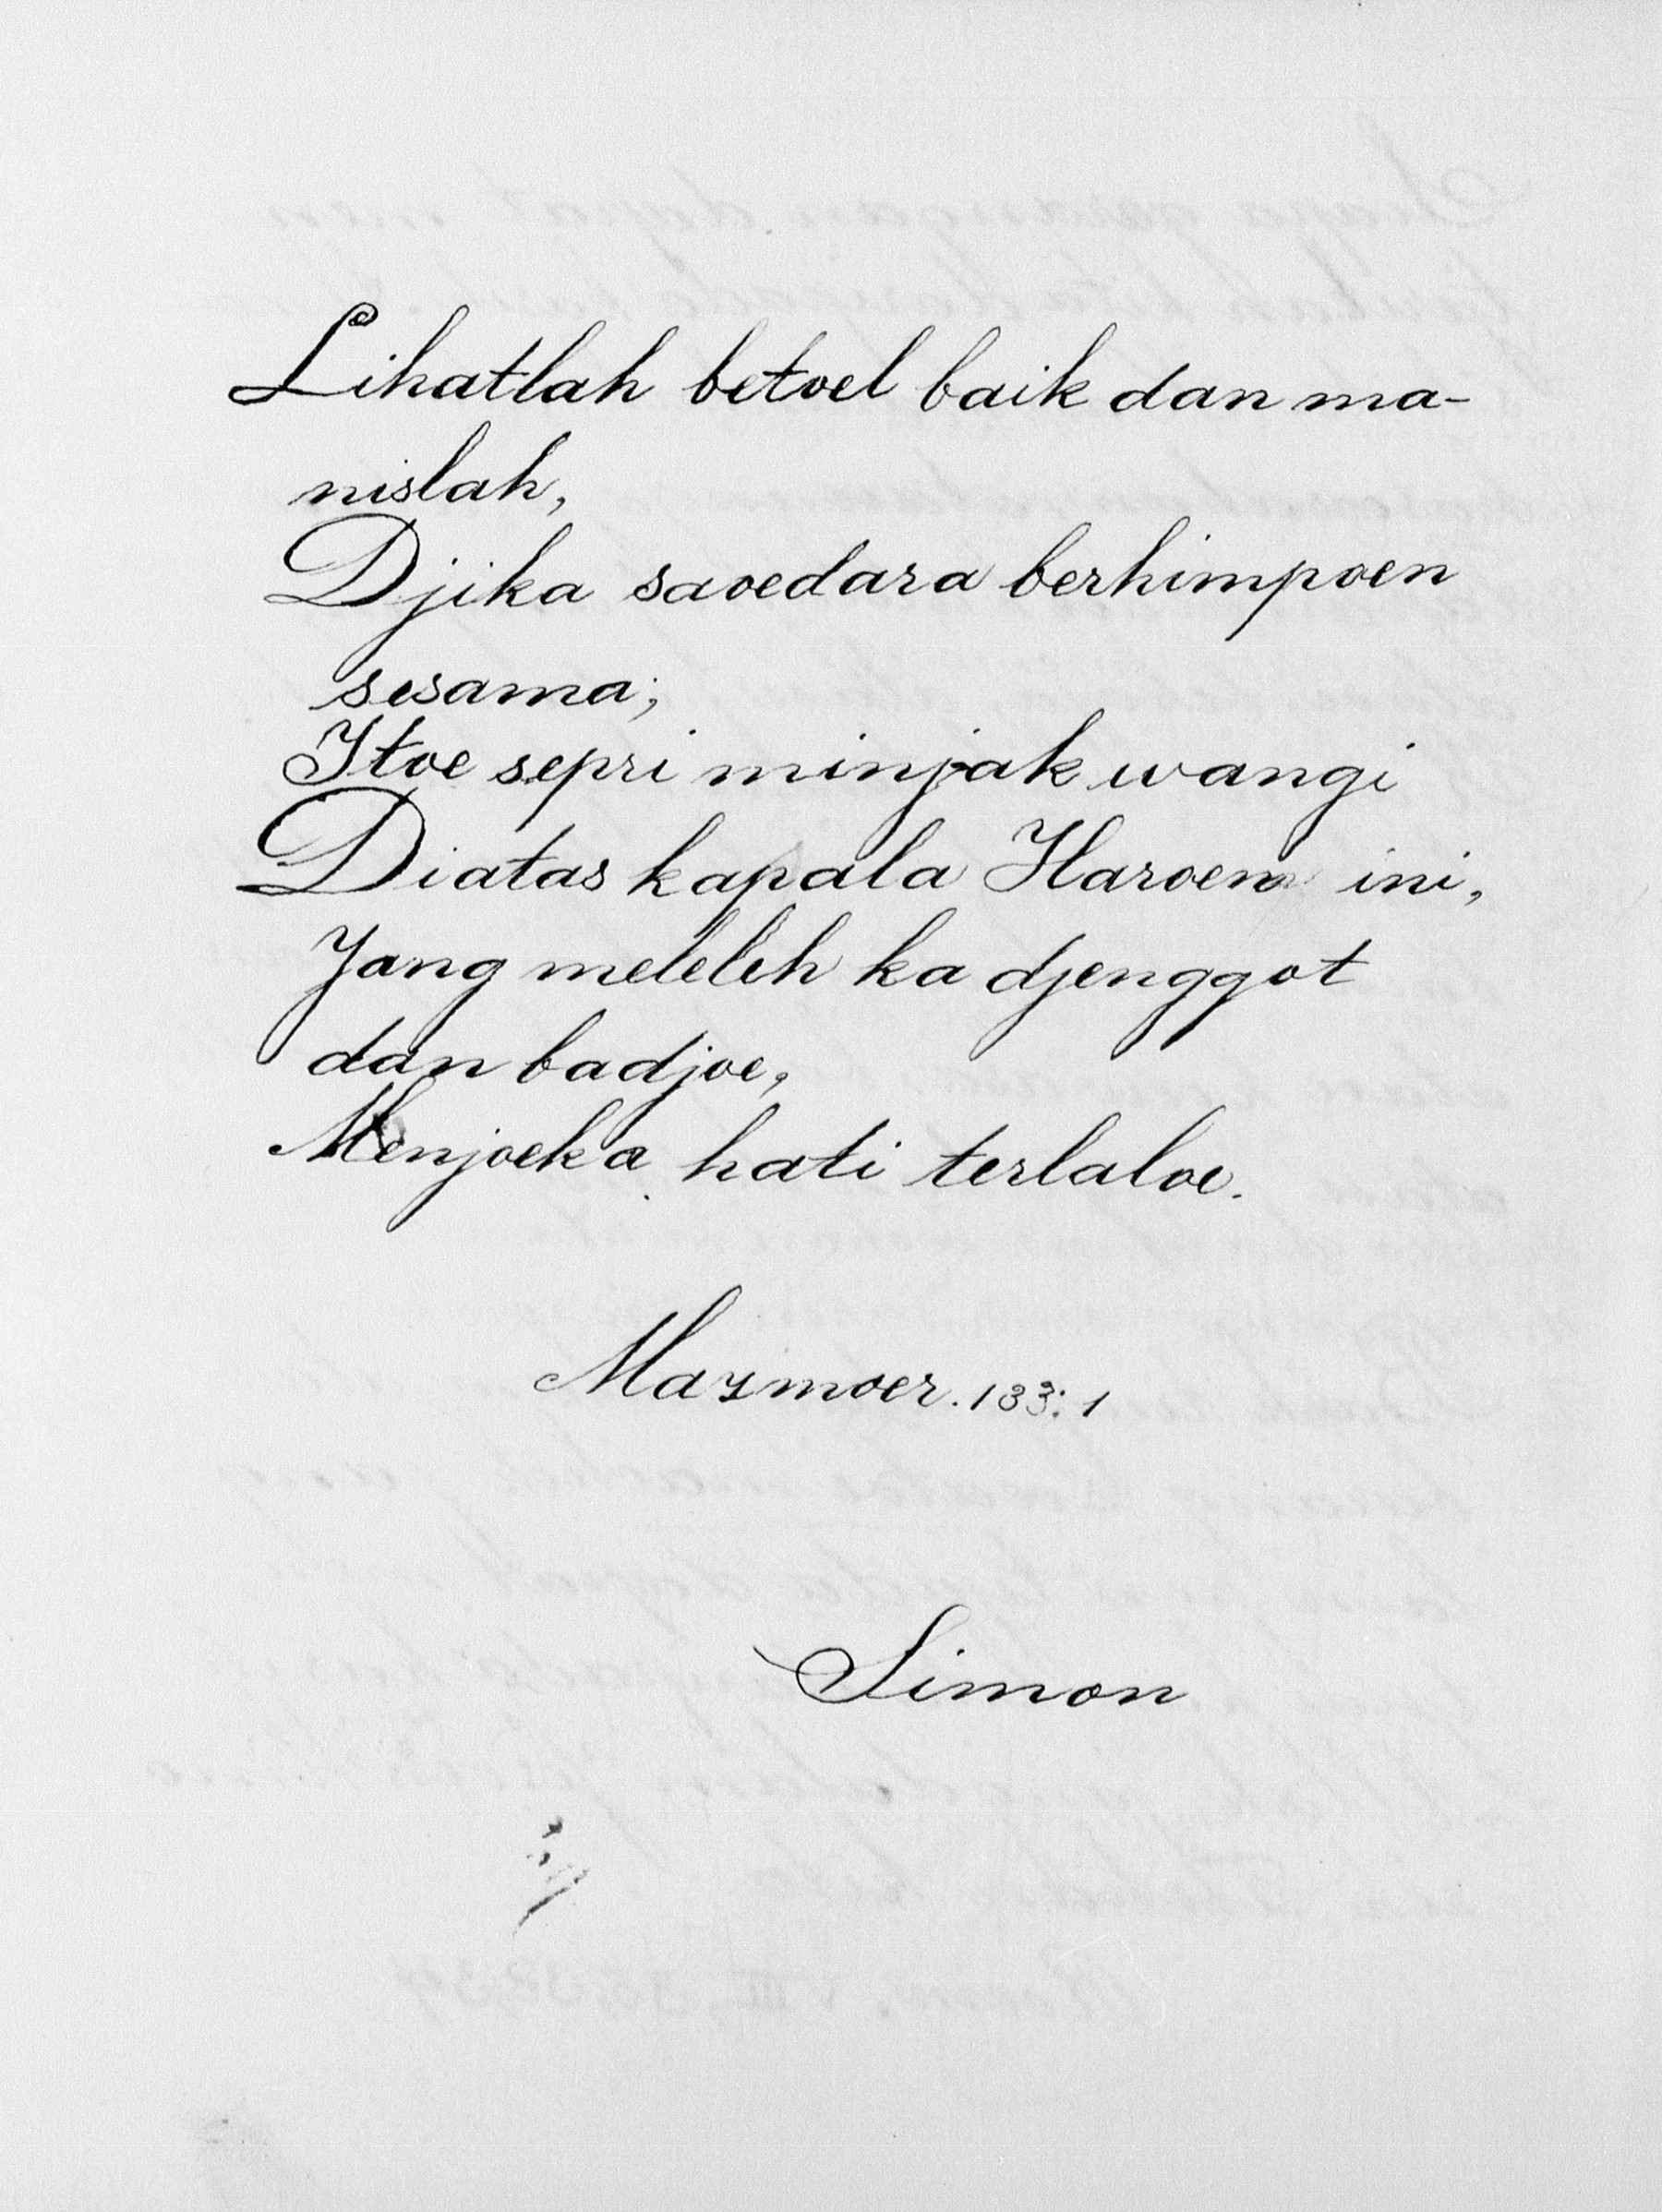 Lihatlah betoel baik dan ma-
nislah,
Djika saoedara berhimpoen
sesama;
Itoe sepri minjak wangi
Diatas kapala Haroen ini,
Jang meleleh ka djenggot
dan badjoe,
Menjoeka hati terlaloe.
Mazmoer. 133:1
Simon